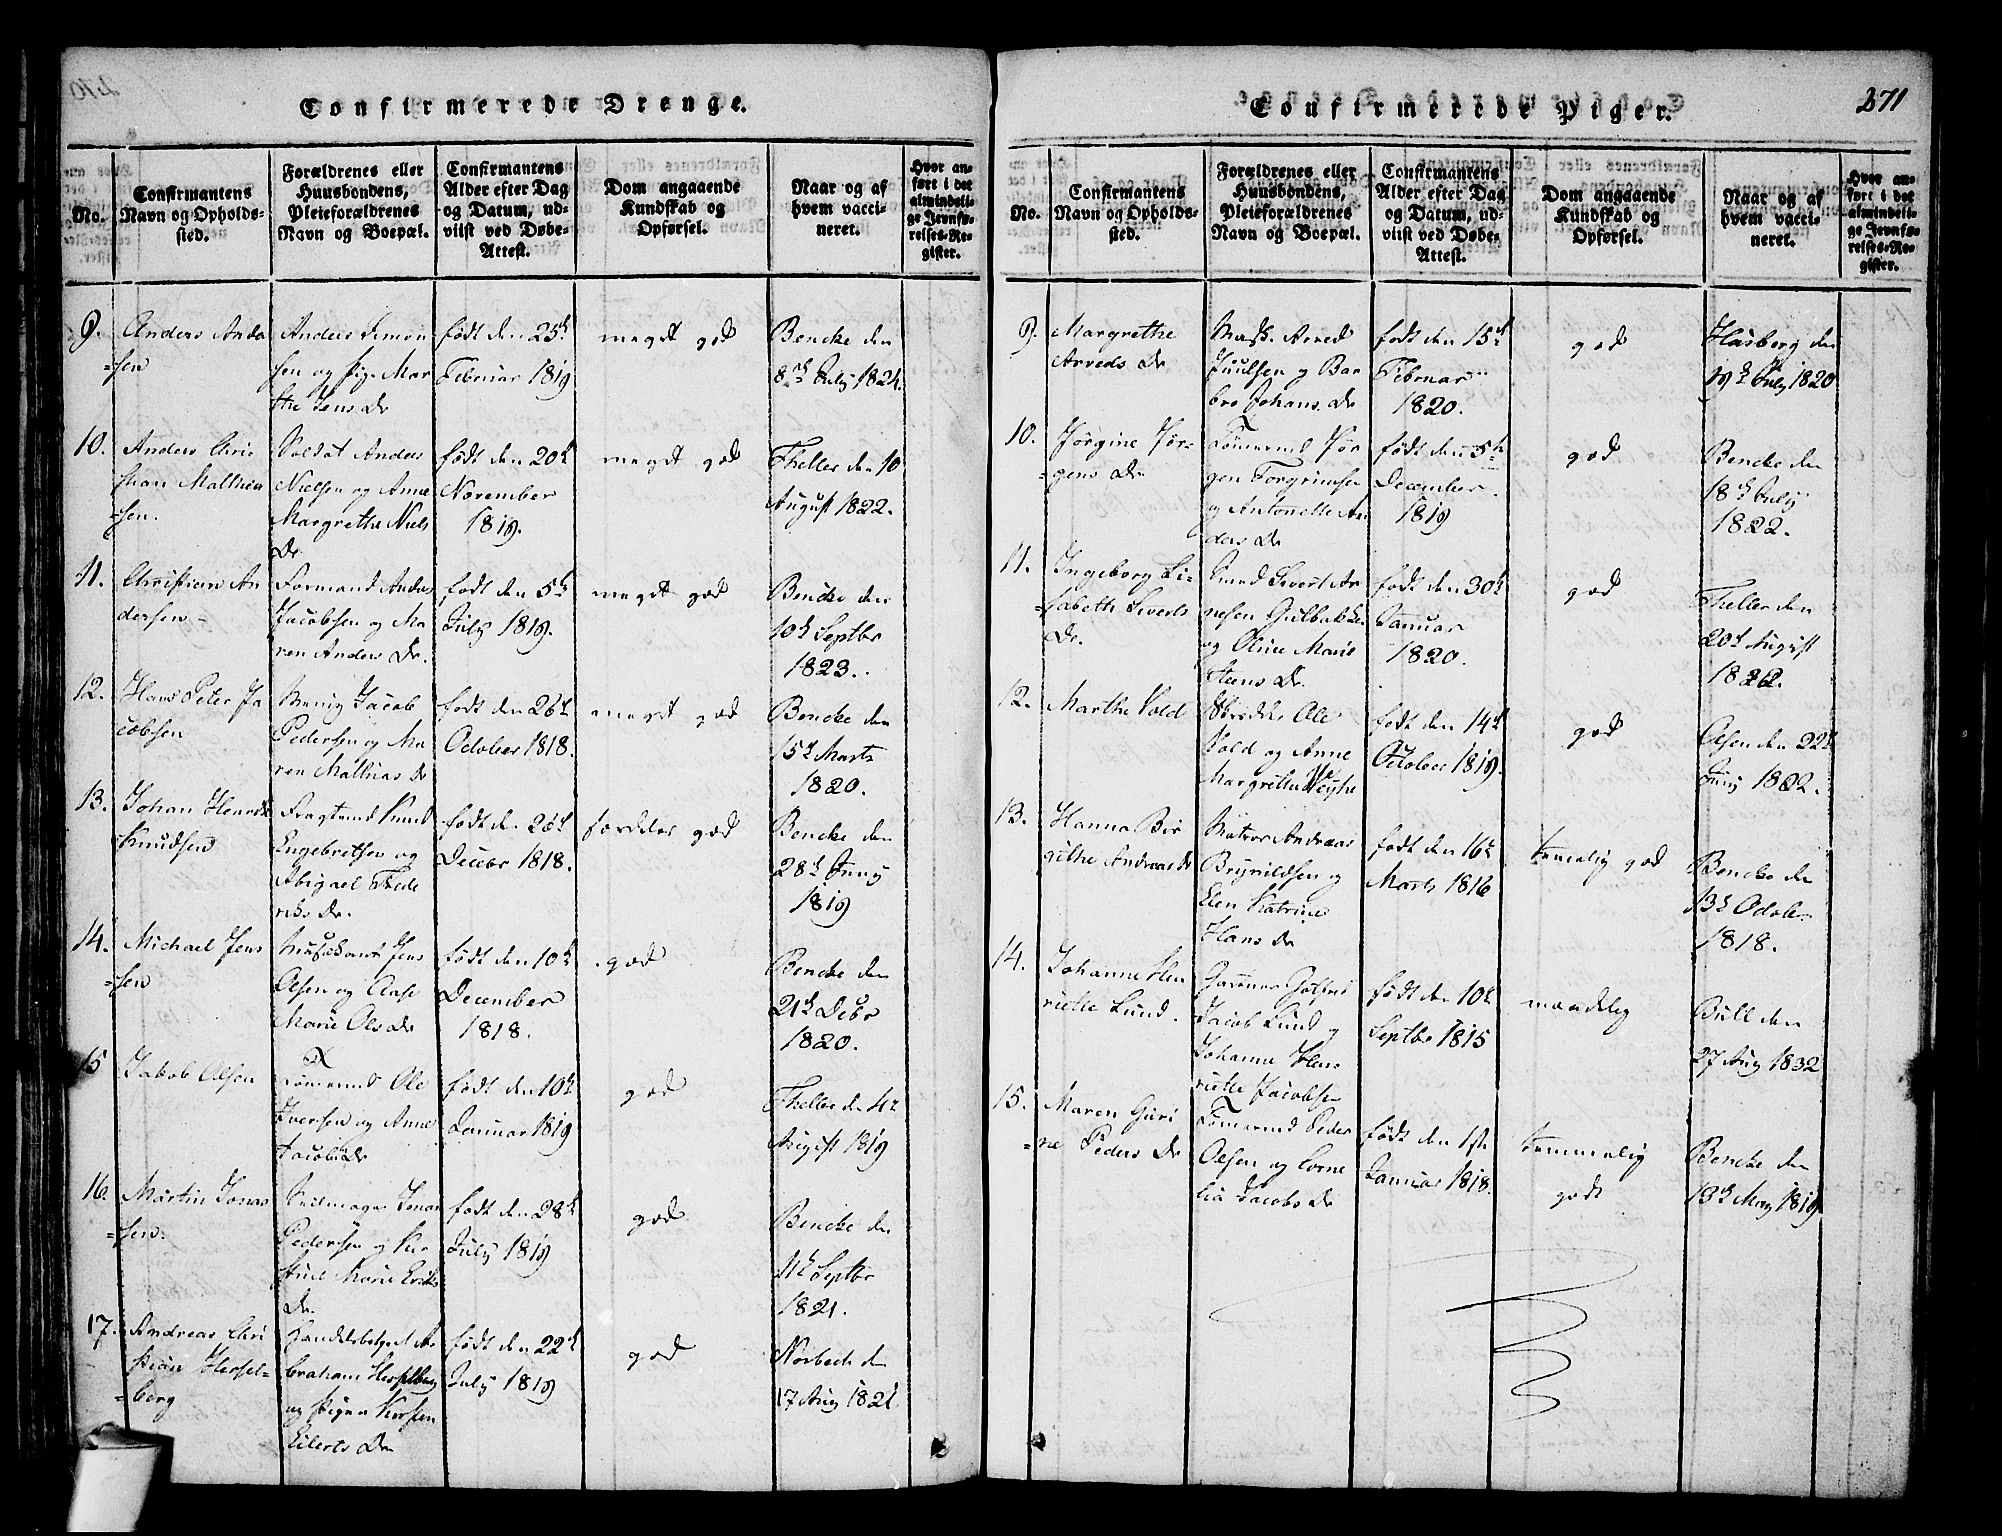 Confirmerede Drenge.
No.
Confirmantens
Navn og Opholds-
sted.
Forældrenes eller
Huusbondens,
Pleieforældrenes
Navn og Boepæl.
Confirmantens
Alder efter Dag
og Datum, ud-
viist ved Døbe-
Attest.
Dom angaaende
Kundskab og
Opførsel.
Naar og af
hvem vacci-
neret.
Hvor an-
ført i det
almindeli-
ge Jevnfø-
relses-Re-
gister.
9.
Anders Ander
=sen
Anders Simon
sen og Pige Mar
the Jens Dr
født den 25de
Februar 1819
meget god
Bencke den
8de July 1824.
10.
Anders Chri
stian Mathies
=sen.
Soldat Anders
Nielsen og Anne
Margrethe Niels
Dr
født den 20de
November
1819.
meget god
Theller den 10
August 1822.
11.
Christian An
dersen
Formand Anders
Jacobsen og Ma
ren Anders Dr.
født den 5de
July 1819.
meget god
Bencke den
10de Septbr
1823.
12.
Hans Peter Ja
cobsen
Jacob
Pedersen og Ma
ren Mathias Dr
født den 26de
October 1818.
meget god
Bencke den
15de Marts
1820.
13.
Johan Henrik
Knudsen
Fragtmd Knud
Engebretsen og
Abigael Frede
riks Dr.
født den 26de
Decebr 1818.
god
Bencke den
28de Juny
1819
14.
Michael Jens
=sen
Musikant Jens
Olsen og Aase
Marie Ols Dr
født den 10de
December
1818.
god
Bencke den
21de Debr
1820.
15
Jakob Olsen
Tømermd Ole
Iversen og Anne
Jacobs Dr
født den 10de
Januar 1819
god
Theller den 4de
August 1819
16.
Martin Jonas
=sen.
Seilmager Jonas
Pedersen og Kir
stine Marie Eriks
Dr.
født den 28de
July 1819
god
Bencke den
11de Septbr
1821.
17.
Andreas Chri
stian Hessel-
=berg
Handelsbetjent A
braham Hesselberg
og Pigen Kirsten
Eilerts Dr
født den 22de
July 1819
god
Norbech d
17 Aug 1821.
Confirmerede Piger.
271
No.
Confirmantens
Navn og Opholds-
sted.
Forældrenes eller
Huusbondens,
Pleieforældrenes
Navn og Boepæl.
Confirmantens
Alder efter Dag
og Datum, ud-
viist ved Døbe-
Attest.
Dom angaaende
Kundskab og
Opførsel.
Naar og af
hvem vacci-
neret.
Hvor an-
ført i det
almindeli-
ge Jevnfø-
relses-Re-
gister.
9.
Margrethe
Arveds Dr
Arved
Juulsen og Bar
bro Johans Dr
født den 15de
Februar
1820.
god
Hasberg den
19de July 1820
10.
Jørgine Jør-
=gens Dr
Tømermd Jør
gen Torgrimsen
og Antonette An
ders Dr
født den 5te
December
1819
god
Bencke den
18de July
1822.
11.
Ingeborg Li-
=sabeth Siverts
Dr.
Smed Sivert Ar
nesen Gulbakken
og Oline Marie
Steens Dr.
født den 30de
Januar
1820.
god
Theller den
20de August
1822.
12.
Marthe Vold
Skredder Ole
Vold og Anne
Margrethe Weyhe
født den 14de
October 1819.
god
Olsen den 22de
Juny 1822.
13.
Hanna Bir
githe Andreas Dr
Matros Andreas
Brynildsen og
Elen Katrine
Hans Dr
født den 16de
Marts 1816
temelig god
Bencke den
13de Octobr
1818.
14.
Johanne Hen
riette Lund.
Garver Gotfred
Jacob Lund og
Johanne Hen
riette Jacobsen
født den 10de
Septbr 1815
maadelig
Bull den
27 Aug 1832
15.
Maren Guri
=ne Peders Dr
Tømermd Peder
Olsen og Corne
lia Jacobs Dr
født den 1ste
Januar 1818.
temmelig
godt
Bencke den
13de May 1819